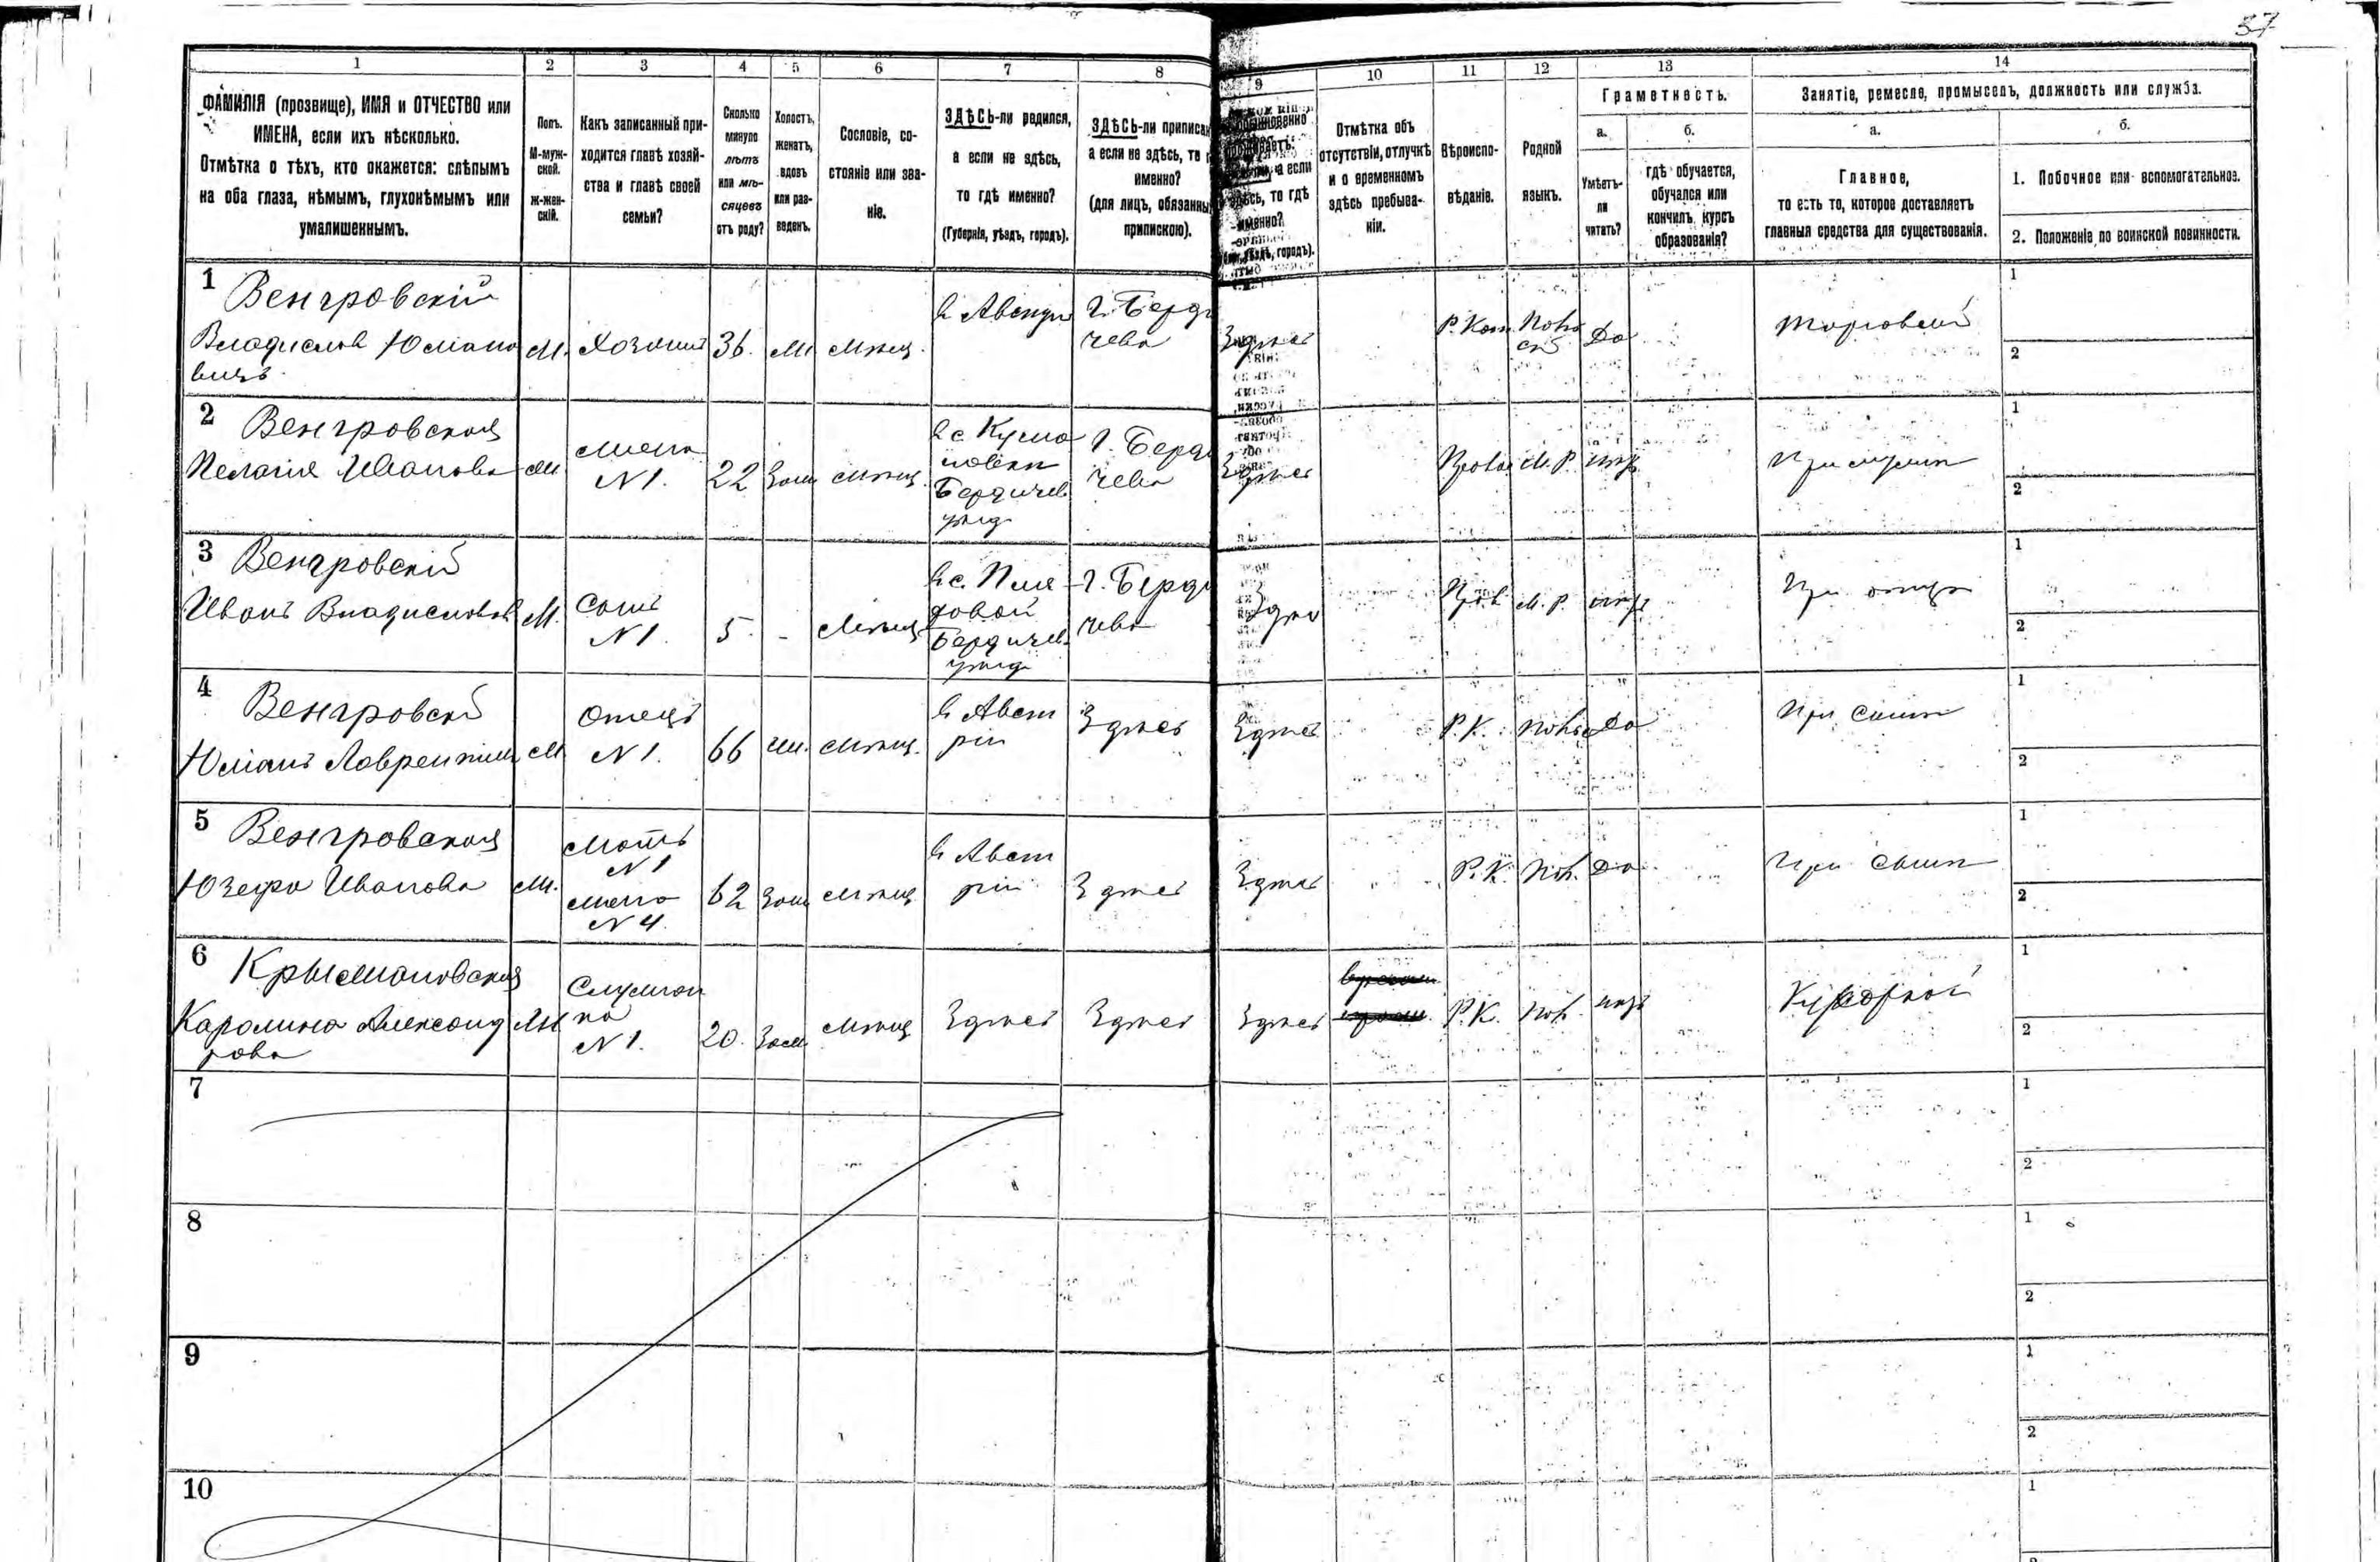 37
1
2
3
4
5
6
7
8
9
10
11
12
13
14
ФАМИЛІЯ (прозвище), ИМЯ и ОТЧЕСТВО или
ИМЕНА, если ихъ нѣсколько.
Отмѣтка о тѣхъ, кто окажется: слѣпымъ
на оба глаза, нѣмымъ, глухонѣмымъ или
умалишеннымъ.
Полъ.
М-муж-
ской.
ж-жен-
скій.
Какъ записанный при-
ходится главѣ хозяй-
ства и главѣ своей
семьи?
Сколько
минуло
лѣтъ
или мѣ-
сяцевъ
отъ роду?
Холостъ,
женатъ,
вдовъ
или раз-
веденъ.
Сословіе, со-
стояніе или зва-
ніе.
ЗДѢСЬ-ли родился,
а если не здѣсь,
то гдѣ именно?
(Губернія, уѣздъ, городъ).
ЗДѢСЬ-ли приписан
а если не здѣсь, то
именно?
(для лицъ, обязанны
припискою).
а если
здѣсь, то гдѣ
именно?
уѣздъ, городъ).
Отмѣтка объ
отсутствіи, отлучкѣ
и о временномъ
здѣсь пребыва-
ніи.
Вѣроиспо-
вѣданіе.
Родной
языкъ.
Грамотность.
а.
Умѣетъ-
ли
читать?
б.
гдѣ обучается,
обучался или
кончилъ курсъ
образованія?
Занятіе, ремесло, промыселъ, должность или служба.
а.
Главное,
то есть то, которое доставляетъ
главныя средства для существованія.
б.
1. Побочное или вспомогательное.
2. Положеніе по воинской повинности.
1 Венгровскій
Владиславъ Юліано
вичъ
М. Хозяинъ 36. Мѣщ.
г. Берди
чева
Здѣсь
Р. Кат. Поль
ск Да
Торговецъ
1
2
2 Венгровская
Пелагія Иванова
жена
N 1.
22 Зам Мѣщ.
Бердичев
уѣзд
г. Берди
чева
Здѣсь
Правос М. Р. нѣтъ
При мужѣ
1
2
3 Венгровскій
Иванъ Владиславов М.
Сынъ
N 1.
5. - Мѣщ
Бердичев.
уѣзд
г. Берди
чева
Здѣс
Прав М. Р. нѣтъ
При отцѣ
1
2
4 Венгровскй
Юліанъ Лаврентіев М
Отецъ
N 1.
66 Мѣщ.
в Авст
ріи
Здѣсь
Здѣсь
Р. К. Польс Да
При сынѣ
1
2
5 Венгровская
Юзефа Иванова
Мать
N 1
жена
N 4.
62 Зам Мѣщ
в Авст
ріи
Здѣсь
Здѣсь
Р. К. Пол. Да
При сынѣ
1
2
6
Каролина Александ
рова
Служан
ка
N 1.
20. Зам Мѣщ
Здѣсь
Здѣсь
Здѣсь
Р. К. Пол. нѣтъ
1
2
7
1
2
8
1
2
9
1
2
10
1